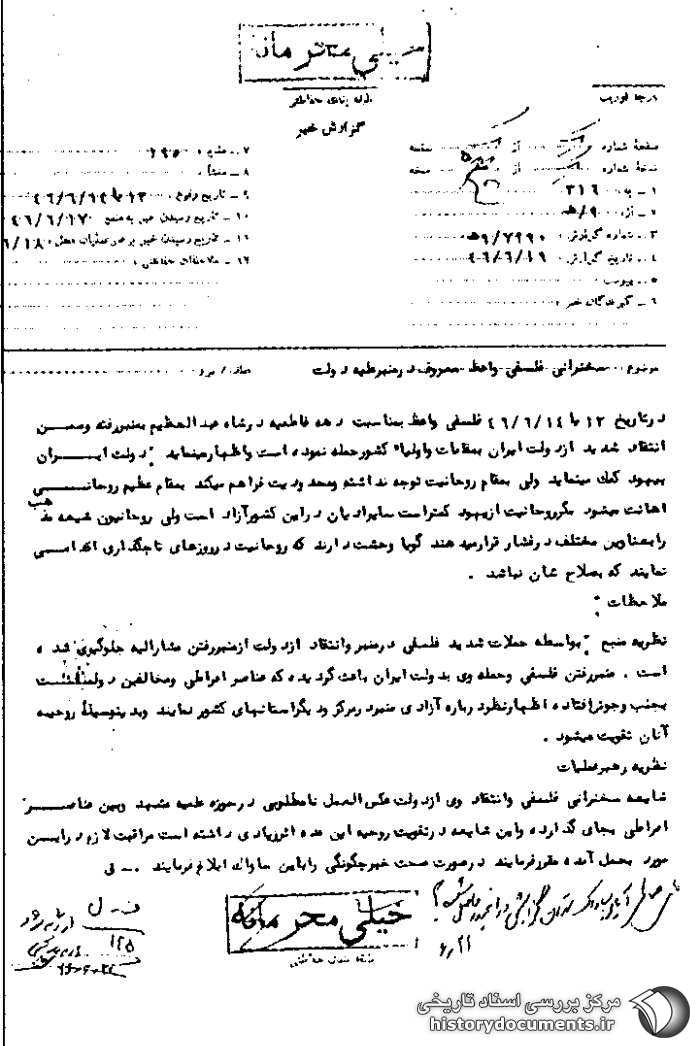 خیلی محرمانه
طبقه بندی حفاظتی
درجه فوریت
گزارش خبر
صفحهٔ شماره از صفحه
نسخهٔ شماره از نسخه
۱ ـ به: ۳۱۶
۲ ـ از: ۹/ﻫ
۳ ـ شماره گزارش: ۹/۷۹۹۰ﻫ
۴ ـ تاریخ گزارش: ۴۶/۶/۱۹
۵ ـ پیوست:
۶ ـ گیرندگان خبر:
۷ ـ منبع:
۸ ـ منشأ:
۹ ـ تاریخ وقوع: ۱۳ تا ۴۶/۶/۱۴
۱۰ ـ تاریخ رسیدن خبر به منبع: ۴۶/۶/۱۷
۱۱ ـ تاریخ رسیدن خبر به رهبر عملیات محل: ۶/۱۸
۱۲ ـ ملاحظات حفاظتی:
موضوع: سخنرانی فلسفی واعظ معروف در منبر علیه دولت
در تاریخ ۱۲ تا ۴۶/۶/۱۴ فلسفی واعظ بمناسبت دهه فاطمیه در شاه عبدالعظیم بمنبر رفته وضمن
انتقاد شدید از دولت ایران بمقامات واولیاء کشور حمله نموده است واظهار مینماید "دولت ایران
بیهود کمک مینماید ولی بمقام روحانیت توجه نداشته ومحدودیت فراهم میکند بمقام عظیم روحانی
اهانت میشود مگر روحانیت از یهود کمتر است سایر ادیان در این کشور آزاد است ولی روحانیون شیعه مذهب
را بعناوین مختلف در فشار قرار میدهند گویا وحشت دارند که روحانیت در روزهای تاجگذاری اقدامی
نمایند که بصلاح شان نباشد .
ملاحظات :
نظریه منبع "بواسطه حملات شدید فلسفی در منبر وانتقاد از دولت از منبر رفتن مشارالیه جلوگیری شده
است . منبر رفتن فلسفی وحمله وی بدولت ایران باعث گردیده که عناصر افراطی ومخالفین دولت
بجنب وجوش افتاده اظهار نظر درباره آزادی منبر در مرکز ودیگر استانهای کشور نمایند وبدینوسیلهٔ روحیه
آنان تقویت میشود .
نظریه رهبر عملیات
شایعه سخنرانی فلسفی وانتقاد وی از دولت عکس العمل نامطلوبی در حوزه علمیه مشهد وبین عناصر
افراطی بجای گذارده واین شایعه در تقویت روحیه این عده اثر زیادی داشته است مراقبت لازم در این
مورد بعمل آمده مقرر فرمایند در صورت صحت خبر چگونگی را باین ساواک ابلاغ فرمایند . ـ ی
۶/۲۱
خیلی محرمانه
طبقه بندی حفاظتی
۱۲۵
مرکز بررسی اسناد تاریخی
historydocuments.ir